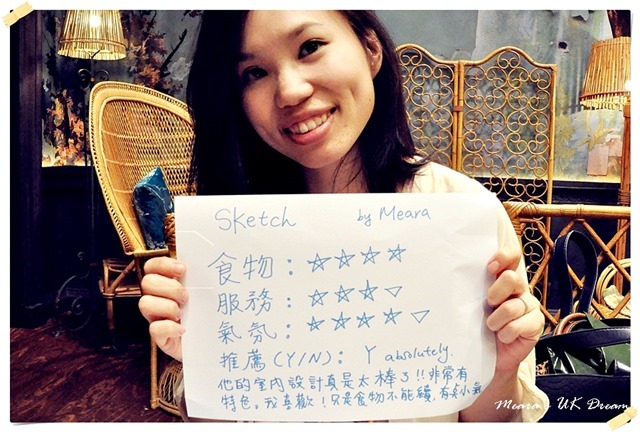 Sketch by Meara
食物：☆☆☆☆
服務：☆☆☆▽
氣氛：☆☆☆☆▽
推薦(Y/N)：Y absolutely.
他的室內設計真是太棒了!!非常有
特色。我喜歡！只是食物不能續，有點小氣
Meara's UK Dream